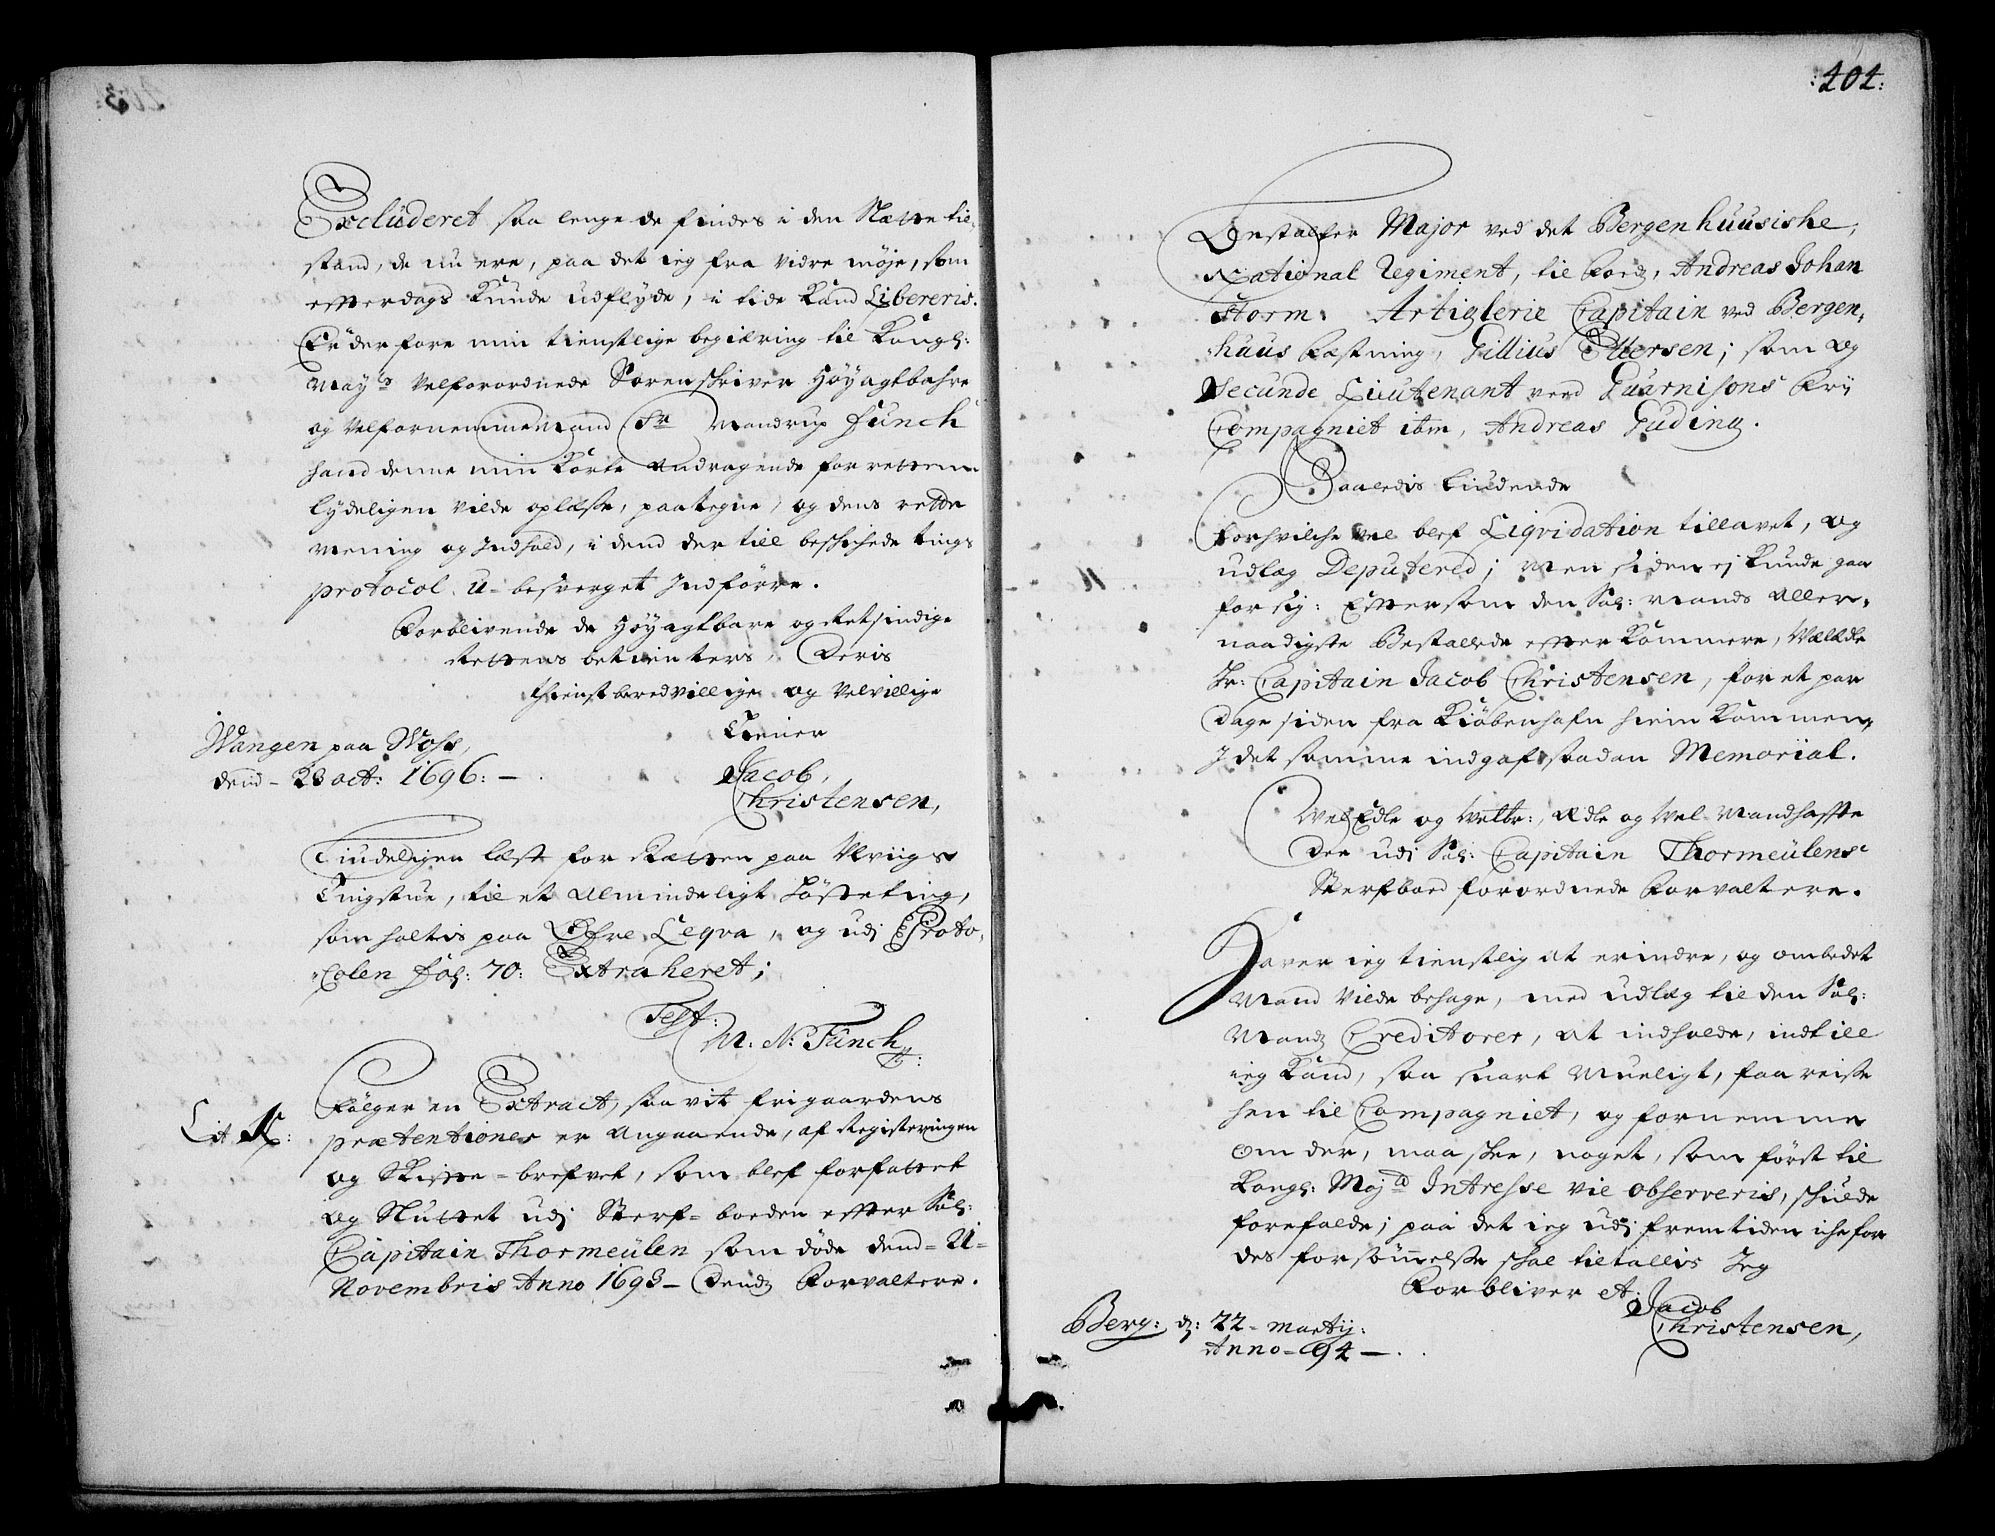 Excluderet saa lenge de findes i den Slætte til-
stand, de nu ere, paa det ieg fra vidre møje, som
efterdags kunde udflyde, i tide kand Libereris.
Er derfore min tienstlige begiæring til Kongl:
Mayts Velforordnede Sorenskriver Høyagtbahre
og Velfornemme Mand Sr Mandrup Funch
hand denne min korte Andragende for retten
lydeligen vilde oplæse, paategne, og dens rette
mening og Indhold, i dend der till beskikede tings
protocol, u-besverget Indføre.
Forblivende de Høyagtbare og Retsindige
Rettens betienters, Deris
thienstberedvillige og velvillige
Tiener
Wangen paa Woss,
dend - 23 oct: 1696: -
Jacob
Christensen,
Tiudeligen læst for Rætten paa Ulviigs
Tingstue, til et Almindeligt Høsteting,
som holtis paa Øfre Leqva, og udj Proto-
colen fol: 70: Extraheret;
Test:
M. N: Funch
Lit A:
Følger en Extract, saavit frigaardens
prætentioner er Angaaende, af Registeringen
og Skifte-brefvet, som blef forfattet
og Sluttet udj Sterf-boeden efter Sal:
Capitain Thormeülen som døde dend - 21 -
Novembris Anno 1693 - Dendz Forvaltere.
:404:
Bestalter Major ved det Bergenhuusiske,
National Regiment, til foedz, Andreas Johan
Storm. Artiglerie Capitain ved Bergen-
huus Fæstning, Gillius Ettersen; som og
Secunde Lieutenant ved Guarnisons Frij
Compagniet ibm, Andreas Guding.
Saaledis liudende
Forhvilche vel blef Liqvidation tillavet, og
udlæg Deputered; men siden ej kunde gaa
for sig: Eftersom den Sal: Mands Aller-
naadigste Bestallede efterkommere, Vælædle
Hr: Capitain Jacob Christensen, for et par
dage siden fra Kiøbenhafn hiem kommen,
I det samme indgaf saadan Memorial.
Wel Edle og Weltr:, Ædle og Wel-Mandhaffte
Der udj Sal: Capitain Thormeülens
Sterfboed forordnede Forvaltere.
Haver ieg tienstlig at erindre, og ombedet
Mand vilde behage, med udlæg til den Sal:
Mandz Creditorer, at indholde, indtill
ieg kand, saa snart mueligt, faa reise
hen til Compagniet, og fornemme
om der, maa skee, noget, som først til
Kongl: Majts Intresse vil observeris, skulde
forefalde; paa det ieg udj fremtiden iche for
des forsømmelse skal tiltallis Jeg
Forbliver et:
Jacob
Christensen,
Berg: d: 22 - Martij:
Anno - 94 -